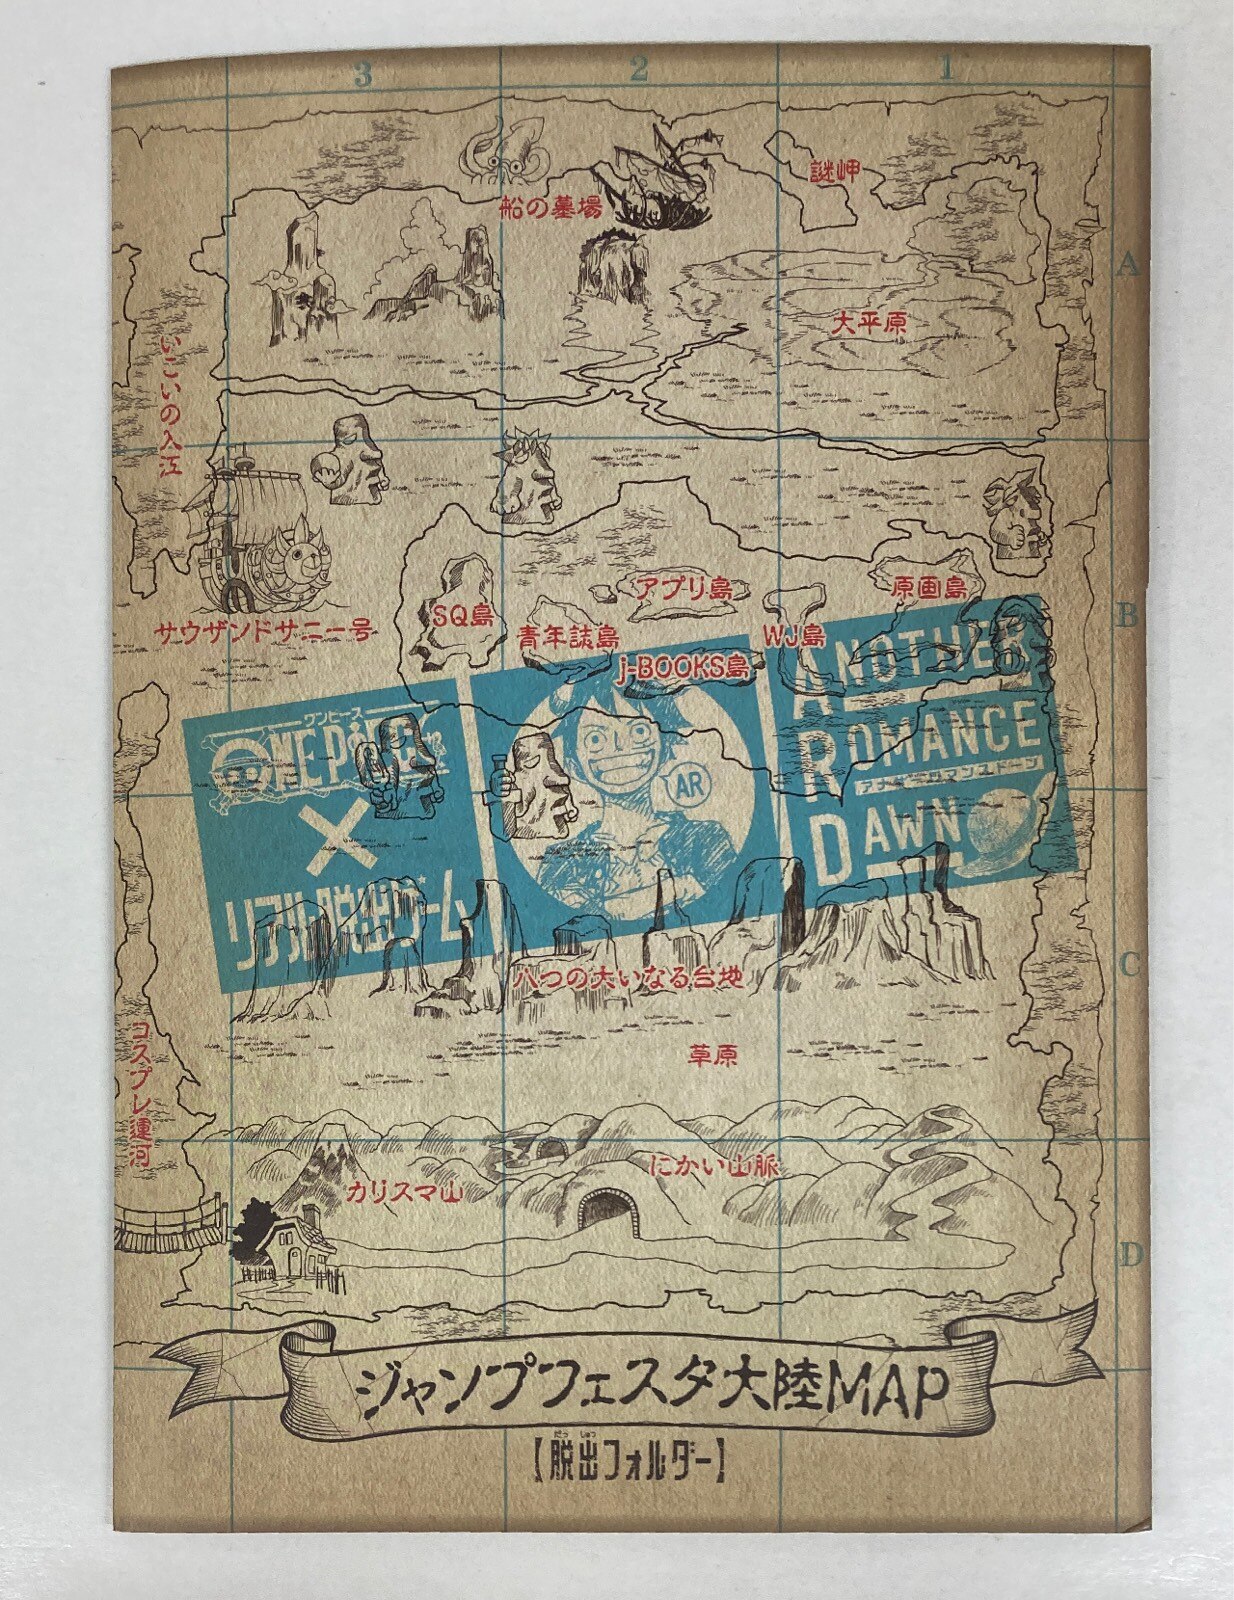 3 2 1
謎岬
船の墓場
A
大平原
いこいの入江
アプリ島
原画島
SQ島
B
サウザンドサニー号
青年誌島
WJ島
j-BOOKS島
ワンピース
ONE PIECE
×
リアル脱出ゲーム
AR
ANOTHER
ROMANCE
アナザーロマンスドーン
DAWN
C
八つの大いなる台地
コスプレ運河
草原
にかい山脈
カリスマ山
D
ジャンプフェスタ大陸MAP
だっしゅつ
【脱出フォルダー】